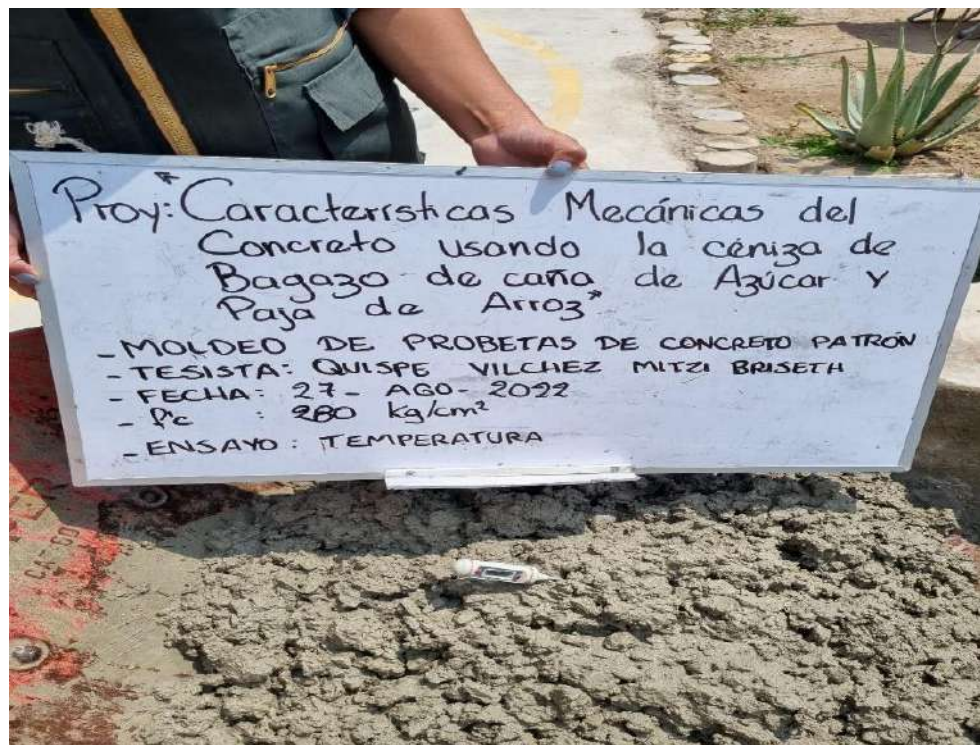 Proy: "Características Mecánicas del
Concreto usando la céniza de
Bagazo de caña de Azúcar y
Paja de Arroz"
- MOLDEO DE PROBETAS DE CONCRETO PATRÓN
- TESISTA: QUISPE VILCHEZ MITZI BRISETH
- FECHA: 27- AGO- 2022
- f'c : 280 kg/cm²
- ENSAYO: TEMPERATURA